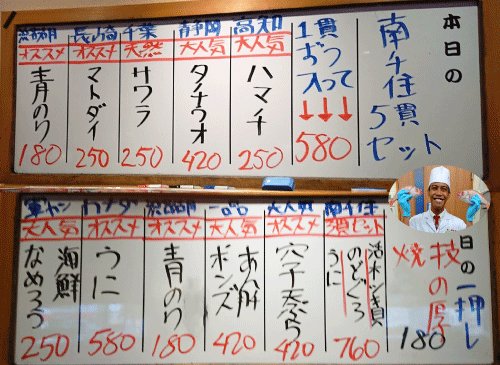 本日の
南千住5貫セット
1貫ずつ入って
↓↓↓
580
高知
大人気
ハマチ
250
静岡
大人気
タチウオ
420
千葉
天然
サワラ
250
長崎
オススメ
マトダイ
250
オススメ
青のり
180
日の一押し
技の厚焼
180
南千住
活ホンキ貝
のどぐろ
うに
760
大人気
オススメ
穴子天ぷら
420
一品
大人気
あん肝ポンズ
420
オススメ
青のり
180
カナダ
オススメ
うに
580
軍カン
大人気
海鮮なめろう
250